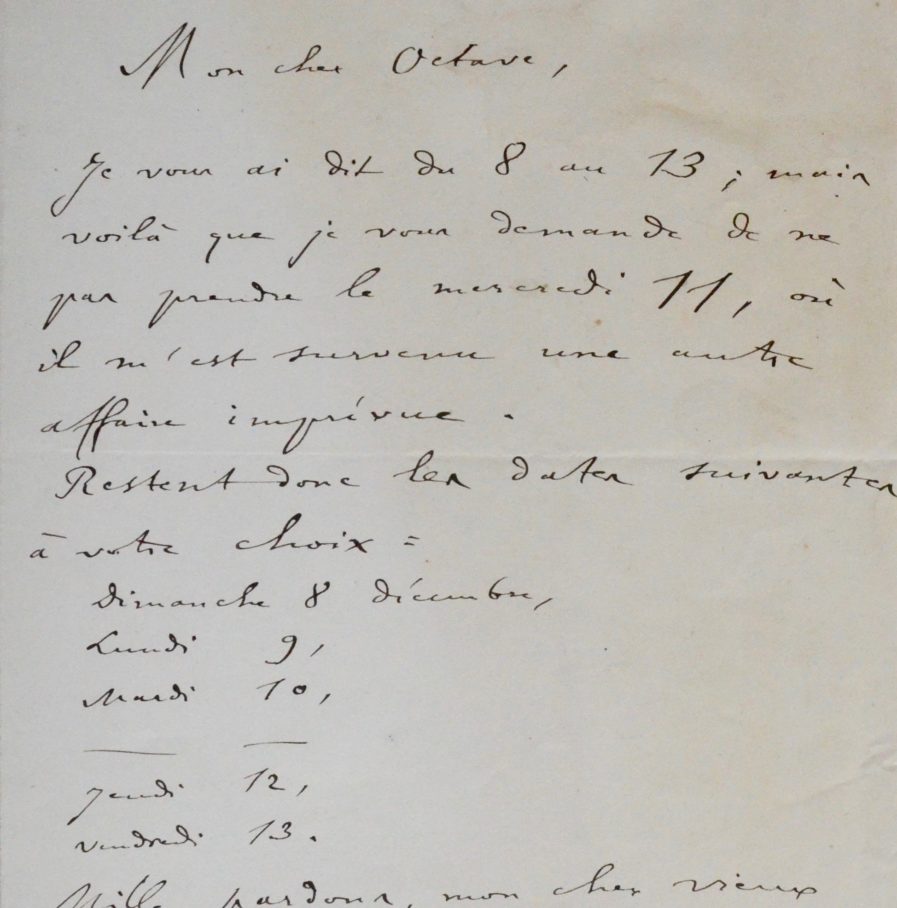 Mon cher Octave,
Je vous ai dit du 8 au 13 ; mais
voilà que je vous demande de ne
pas prendre le mercredi 11, où
il m'est survenu une autre
affaire imprévue.
Restent donc les dates suivantes
à votre choix =
Dimanche 8 décembre,
Lundi 9,
Mardi 10,
Jeudi 12,
Vendredi 13.
Mille pardons, mon cher vieux